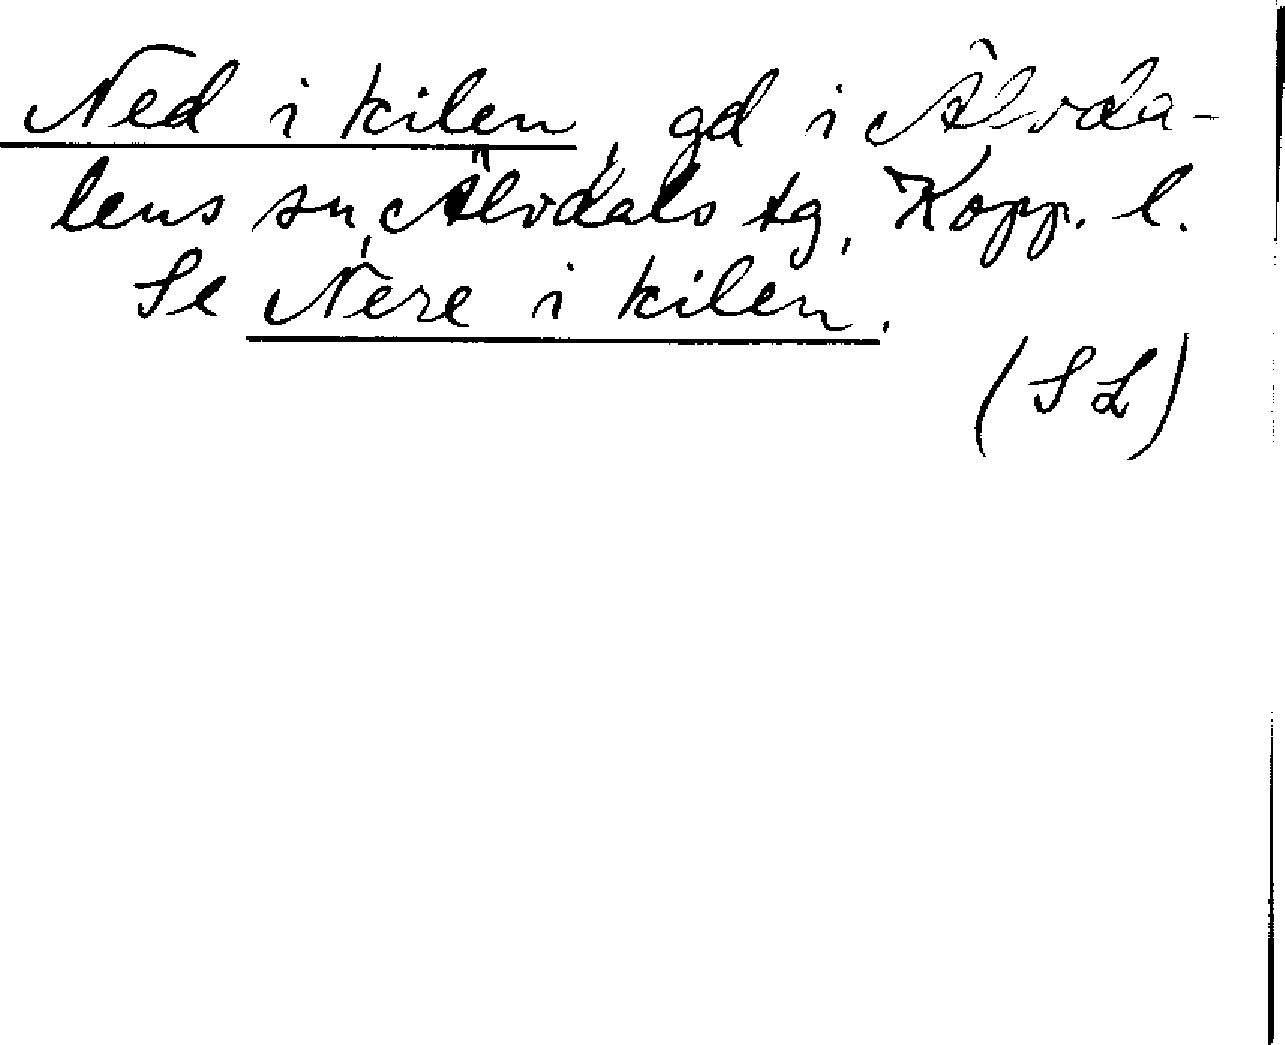 Ned i kilen, gd i Älvda-
lens sn, Älvdals tg, Kopp. l.
Se Nere i kilen.
(S L)